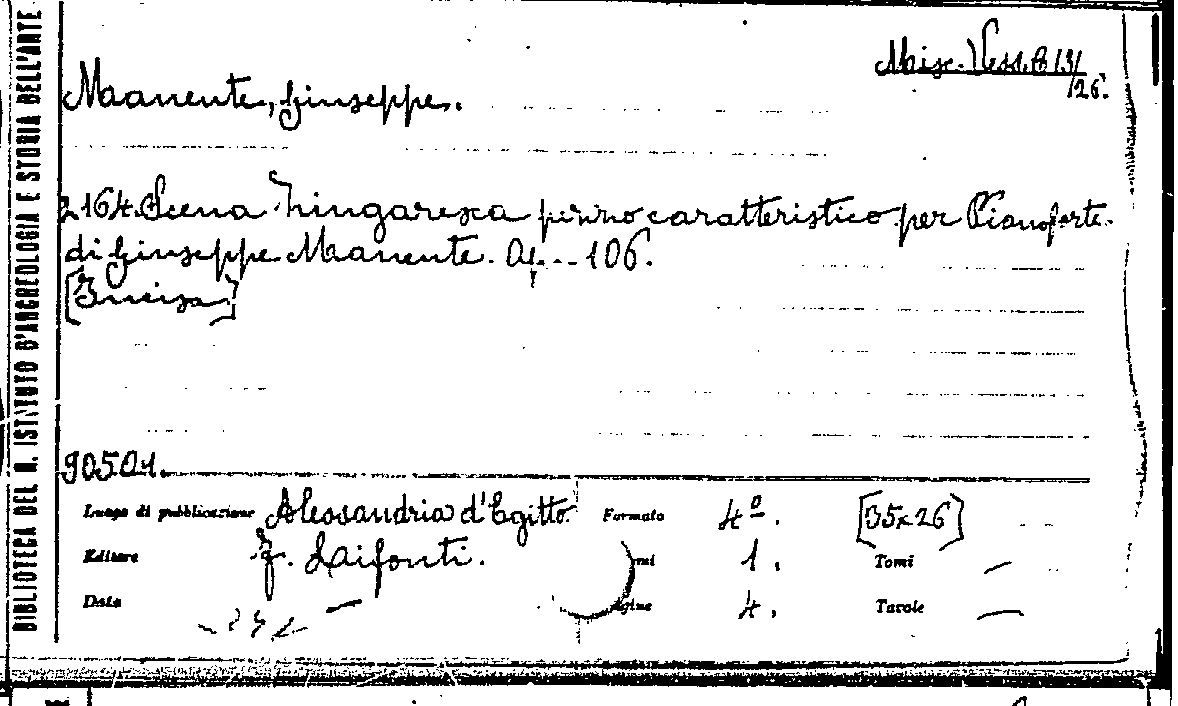 BIBLIOTECA DEL R. ISTITUTO D'ARCHEOLOGIA E STORIA DELL'ARTE
Misc. Vess. B 13/
26.
Manente, Giuseppe.
2164. Scena Zingaresca pezzo caratteristico per Pianoforte
di Giuseppe Manente. Op. .. 106.
[Incisa]
90501.
Luogo di pubblicazione Alessandria d'Egitto. Formato 4º. [35x26]
Editore F. Laifonti. 1. Tomi —
Data — Pagine 4. Tavole —